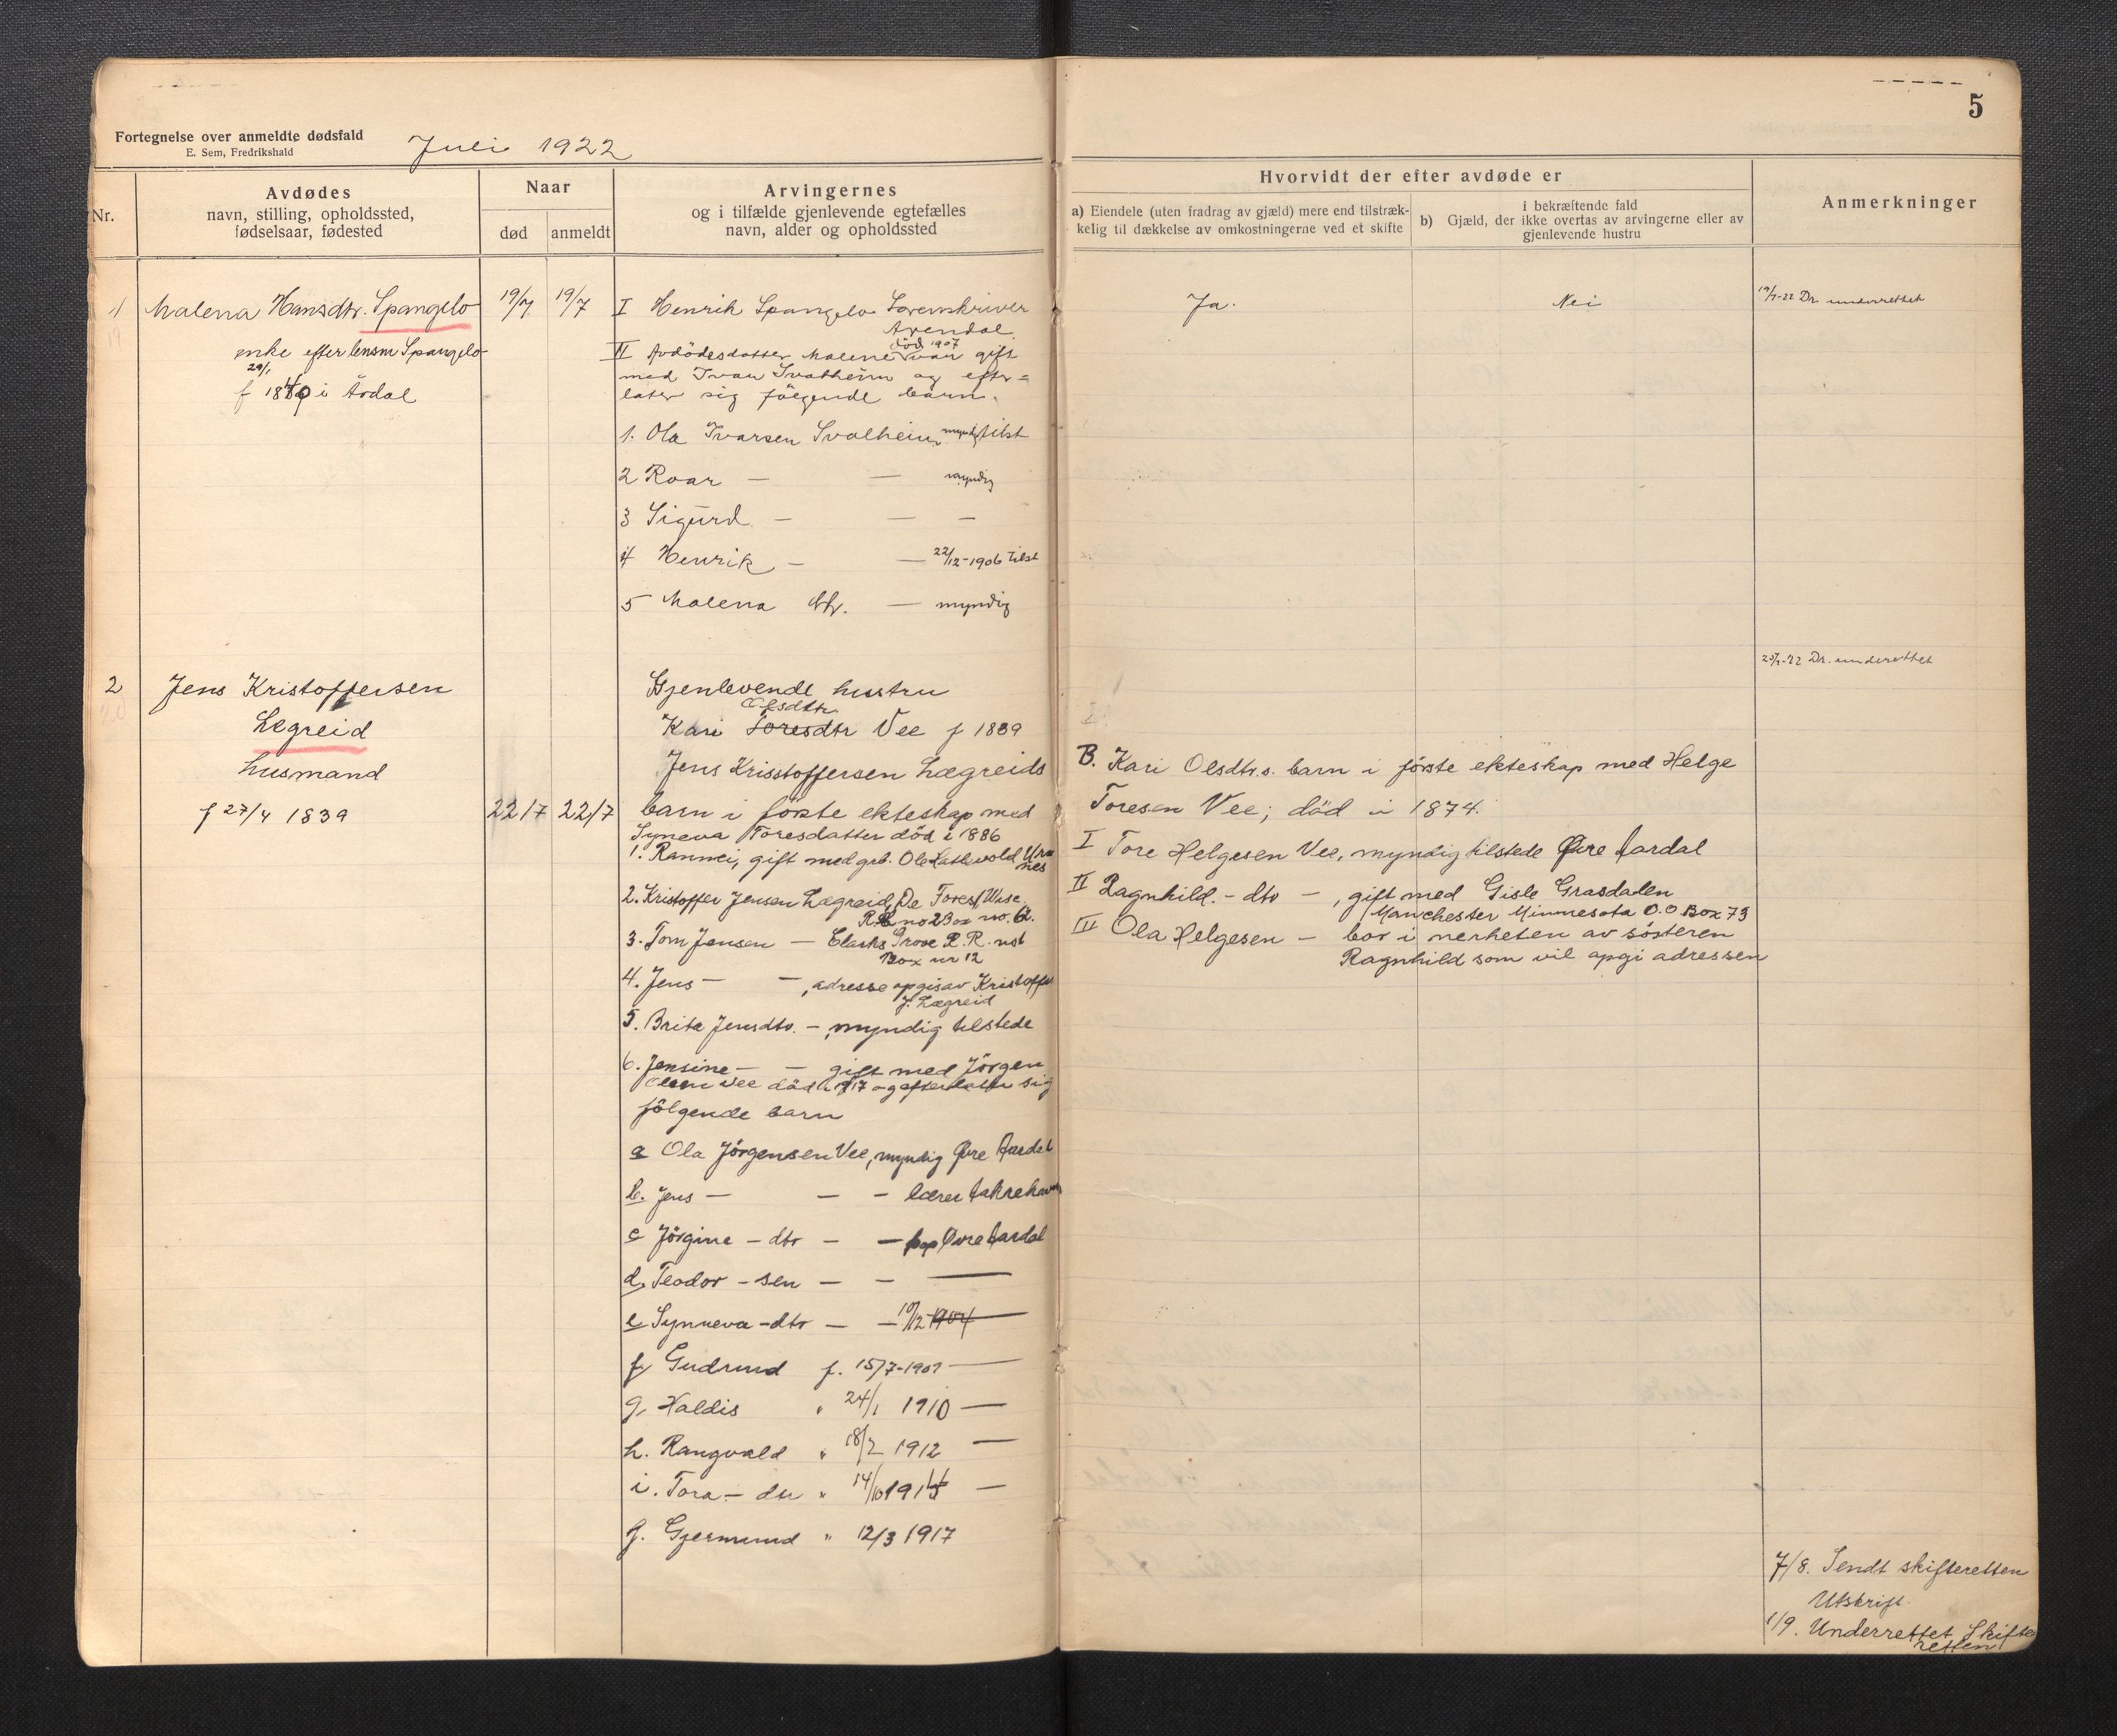 5
Fortegnelse over anmeldte dødsfald
E. Sem, Fredrikshald
Juli 1922
Nr.
Avdødes
navn, stilling, opholdssted,
fødselsaar, fødested
Naar
død
anmeldt
Arvingernes
og i tilfælde gjenlevende egtefælles
navn, alder og opholdssted
Hvorvidt der efter avdøde er
a) Eiendele (uten fradrag av gjæld) mere end tilstræk-
kelig til dækkelse av omkostningerne ved et skifte
i bekræftende fald
b) Gjæld, der ikke overtas av arvingerne eller av
gjenlevende hustru
Anmerkninger
1
Malena Hansdtr. Spangelo
enke efter lensm Spangelo
29/1
f 1840 i Årdal
19/7
19/7
I Henrik Spangelo Sorenskriver
Arendal
død 1907
II Avdödesdatter Malene var gift
med Ivar Svalheim og efter=
later sig fölgende barn.
1. Ola Ivarsen Svalheim myndig tilst
2 Roar — — myndig
3 Sigurd — — —
4 Henrik — — 22/12-1906 tilst
5 Malena dtr. — myndig
Ja.
Nei
19/7-22 Dr. underrettet
2
Jens Kristoffersen
Legreid
husmand
f 27/4 1839
22/7
22/7
Gjenlevende hustru
Olsdtr
Kari Toresdtr Vee f 1839
Jens Kristoffersen Lægreids
barn i förste ekteskap med
Syneva Toresdatter död i 1886
1. Rannei, gift med grb. Ole Lathevold Urnes
2. Kristoffer Jensen Lægreid, De Forest Wise.
R.R. no 2 Box no. 62.
3. Tom Jensen — Clarks Grove R.R. no1
Box nr 12
4. Jens — —, adresse opgis av Kristoffer
J. Lægreid
5. Brita Jensdtr. —, myndig tilstede
6. Jensine — — gift med Jörgen
Olsen Vee död i 1917 og efterlater sig
fölgende barn
a Ola Jörgensen Vee, myndig Øvre Aardal
b. Jens — — — lærer Aakrehavn
c Jörgine — dtr — — Øvre Aardal
d. Teodor — sen — — —
e Synneva — dtr — — 10/12 1904 —
f Gudrund f. 15/7-1907 —
g. Haldis " 24/1 1910 —
h. Rangvald " 18/2 1912 —
i. Tora — dtr " 14/10 1914 —
j. Gjermund " 12/3 1917
25/7-22 Dr. underettet
B. Kari Olsdtr.s. barn i förste ekteskap med Helge
Toresen Vee; död i 1874.
I Tore Helgesen Vee, myndig tilstede Øvre Aardal
II Ragnhild. — dtr —, gift med Gisle Grasdalen
Manchester Minnesota O.O Box 73
III Ola Helgesen — bor i nerheten av sösteren
Ragnhild som vil opgi adressen
7/8. Sendt skifteretten
Utskrift.
1/9. Underrettet Skifte
retten